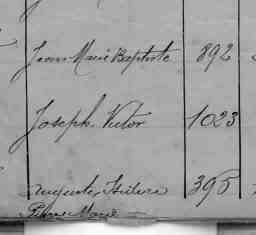 Jean Marie Baptiste 892
Joseph Victor 1023
Auguste, Isidore 396
Pierre Marie